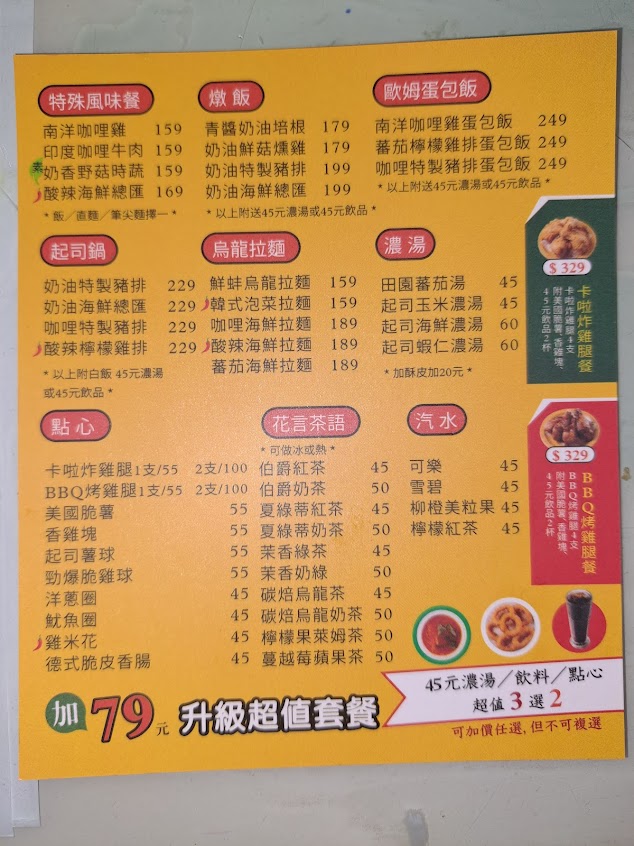 特殊風味餐
南洋咖哩雞 159
印度咖哩牛肉 159
素 奶香野菇時蔬 159
酸辣海鮮總匯 169
*飯／直麵／筆尖麵擇一*
燉飯
青醬奶油培根 179
奶油鮮菇燻雞 179
奶油特製豬排 199
奶油海鮮總匯 199
*以上附送45元濃湯或45元飲品*
歐姆蛋包飯
南洋咖哩雞蛋包飯 249
蕃茄檸檬雞排蛋包飯 249
咖哩特製豬排蛋包飯 249
*以上附送45元濃湯或45元飲品*
起司鍋
奶油特製豬排 229
奶油海鮮總匯 229
咖哩特製豬排 229
酸辣檸檬雞排 229
*以上附白飯 45元濃湯
或45元飲品*
烏龍拉麵
鮮蚌烏龍拉麵 159
韓式泡菜拉麵 159
咖哩海鮮拉麵 189
酸辣海鮮拉麵 189
蕃茄海鮮拉麵 189
濃湯
田園蕃茄湯 45
起司玉米濃湯 45
起司海鮮濃湯 60
起司蝦仁濃湯 60
*加酥皮加20元*
$329
卡啦炸雞腿餐
卡啦炸雞腿4支
附美國脆薯、香雞塊、
45元飲品2杯
點心
卡啦炸雞腿1支/55 2支/100
BBQ烤雞腿1支/55 2支/100
美國脆薯 55
香雞塊 55
起司薯球 55
勁爆脆雞球 55
洋蔥圈 45
魷魚圈 45
雞米花 45
德式脆皮香腸 45
花言茶語
*可做冰或熱*
伯爵紅茶 45
伯爵奶茶 50
夏綠蒂紅茶 45
夏綠蒂奶茶 50
茉香綠茶 45
茉香奶綠 50
碳焙烏龍茶 45
碳焙烏龍奶茶 50
檸檬果萊姆茶 50
蔓越莓蘋果茶 50
汽水
可樂 45
雪碧 45
柳橙美粒果 45
檸檬紅茶 45
$329
BBQ烤雞腿餐
BBQ烤雞腿4支
附美國脆薯、香雞塊、
45元飲品2杯
加79元 升級超值套餐
45元濃湯／飲料／點心
超值3選2
可加價任選,但不可複選